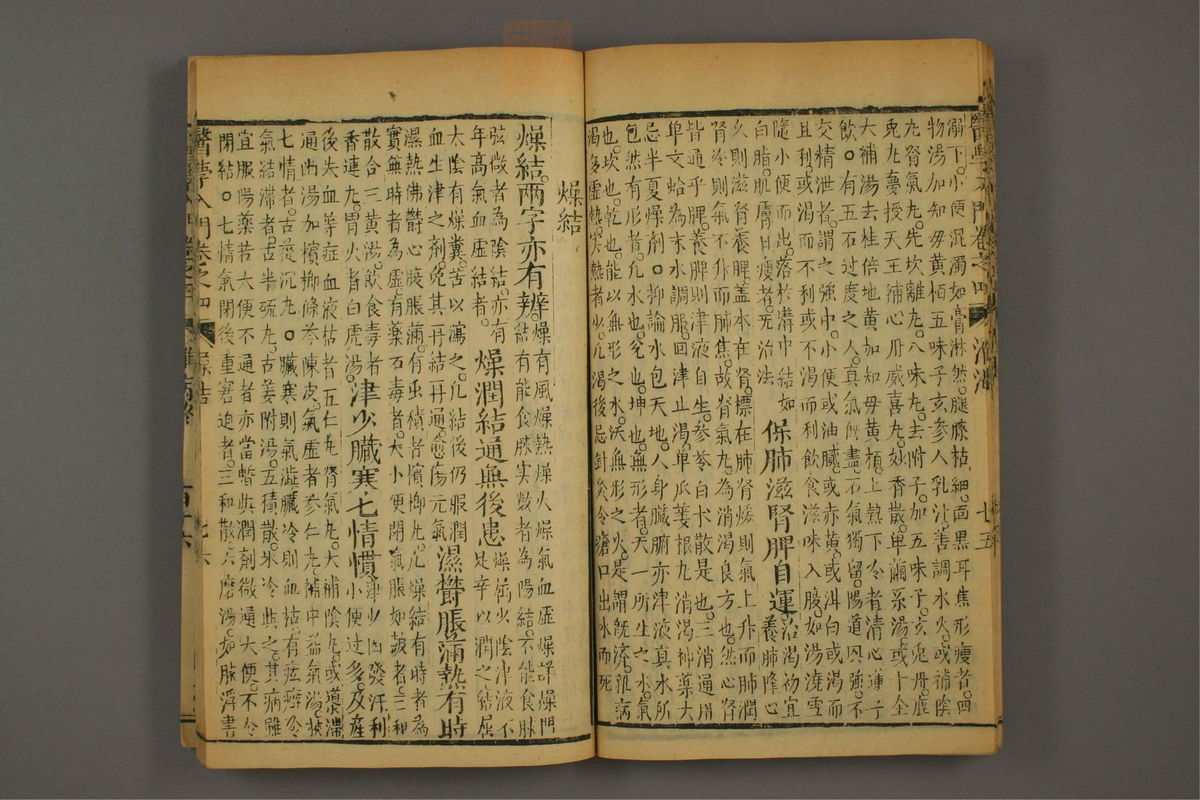 溺下。小便混濁如膏淋然。腿膝枯細。面黑耳焦形瘦者。四
物湯加知母黄栢五味子玄參人乳汁。善調水火。或補陰
丸腎氣丸。先坎離丸。八味丸。去附子。加五味子。玄兔丹。鹿
兎丸。夢授天王補心丹。威喜丸。妙香散。單繭絲湯。或十全
大補湯去桂倍地黄。加知母黄栢。上熱下冷者清心蓮子
飲。有五石過度之人。真氣旣盡。石氣獨留。陽道興強。不
交精泄者。謂之強中。小便或油膩。或赤黄。或泔白。或渴而
且利。或渴而不利。或不渴而利。飲食滋味入腹。如湯澆雪
隨小便而出。落於溝中結如
白脂。肌膚日瘦者。無治法
保肺滋腎脾自運
治渴初宜
養肺降心
久則滋腎養脾。蓋本在腎。標在肺。腎煖則氣上升而肺潤
腎冷則氣不升而肺焦。故腎氣丸。為消渴良方也。然心腎
皆通乎脾。養脾則津液自生。參苓白术散是也。三消通用
單文蛤為末。水調服。回津止渴。單瓜蔞根丸。消渴神藥。大
忌半夏燥劑。抑論水包天地。人身臟腑亦津液真水所
包。然有形者。凡水也。兌也。坤也。無形者。天一所生之水。氣
也。坎也。乾也。能以無形之水。沃無形之火。是謂旣濟。雜病
渴多虛熱。実熱者少。凡渴後忌針灸。令瘡口出水而死
燥結
燥結兩字亦有辨
燥有風燥熱燥火燥氣血虛燥。詳燥門
結有能食脉実数者為陽結。不能食脉
弦微者為陰結。亦有
年高氣血虛結者。
燥潤結通無後患
燥屬少陰津液不
足。辛以潤之。結屬
太陰有燥糞。苦以瀉之。凡結後仍服潤
血生津之劑。免其再結再通。愈傷元氣
濕鬱脹滿熱有時
濕熱佛鬱心腹脹滿。有虫積者檳榔丸。凡燥結有時者為
實。無時者為虛。有藥石毒者。大小便閉。氣脹如皷者。三和
散合三黄湯。飲食毒者
香連丸。胃火者白虎湯。
津少臟寒七情慣
津少。因發汗利
小便過多。及產
後失血等症。血液枯者。五仁丸。腎氣丸。大補陰丸。或導滯
通幽湯加檳榔條芩陳皮。氣虛者參仁丸。補中益氣湯。挾
七情者。古蓯沉丸。臟寒則氣澁。臟冷則血枯。有痃癖冷
氣結滯者。古半硫丸。古姜附湯。五積散。米冷與之。其病雖
宜服陽藥。若大便不通者。亦當暫與潤劑。微通大便。不令
閉結。七情氣閉後重窘迫者。三和散六磨湯。如脉浮書